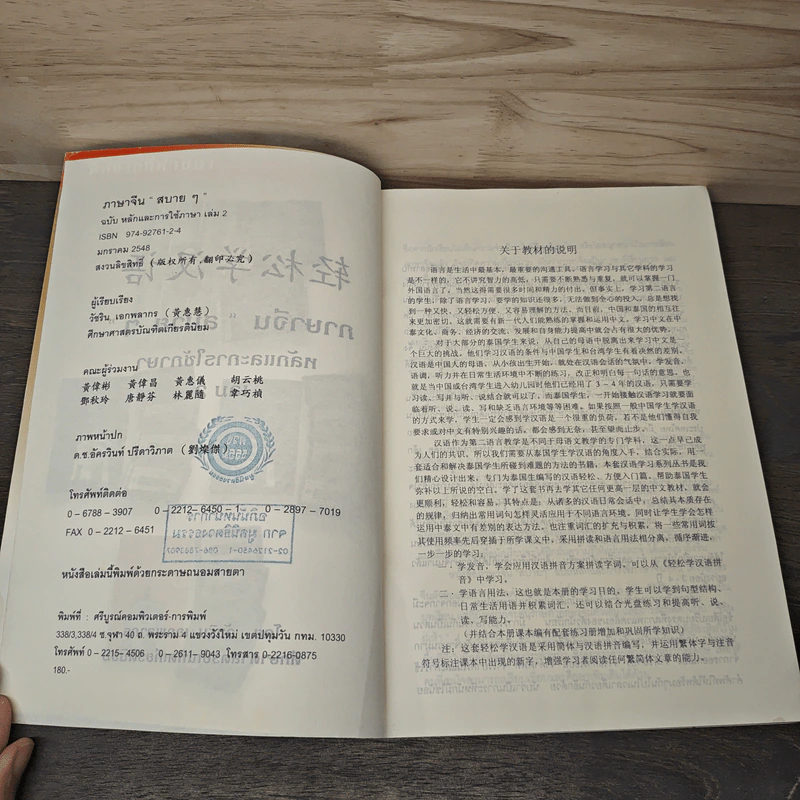 ภาษาจีน " สบาย ๆ "
ฉบับ หลักและการใช้ภาษา เล่ม 2
ISBN 974-92761-2-4
มกราคม 2548
สงวนลิขสิทธิ์ (版权所有,翻印必究)
ผู้เรียบเรียง
วัชริน เอกพลากร (黃惠慧)
ศึกษาศาสตรบัณฑิตเกียรตินิยม
คณะผู้ร่วมงาน
黃偉彬 黃偉昌 黃惠儀 胡云桃
鄧秋玲 唐靜芬 林麗隨 韋巧楨
ภาพหน้าปก
ด.ช.อัครวินท์ ปรีดาวิภาต (劉燦傑)
โทรศัพท์ติดต่อ
0-6788-3907 0-2212-6450-1 0-2897-7019
FAX 0-2212-6451
หนังสือเล่มนี้พิมพ์ด้วยกระดาษถนอมสายตา
พิมพ์ที่ : ศรีบูรณ์คอมพิวเตอร์-การพิมพ์
338/3,338/4 ซ.จุฬา 40 ถ. พระราม 4 แขวงวังใหม่ เขตปทุมวัน กทม. 10330
โทรศัพท์ 0-2215-4506 0-2611-9043 โทรสาร 0-2216-0875
180.-
关于教材的说明
语言是生活中最基本、最重要的沟通工具。语言学习与其它学科的学习
是不一样的,它不讲究智力的高低,只需要不断熟悉与重复,就可以掌握一门
外国语言了。当然这得需要很多时间和精力的付出。但事实上,学习第二语言
的学生,除了语言学习,要学的知识还很多,无法做到全心的投入,总是想找
到一种又快、又轻松方便、又容易理解的方法。而目前,中国和泰国的相互往
来更加密切,这就需要有新一代人们能熟练的掌握和运用中文。学习中文在中
泰文化、商务、经济的交流、发展和自身能力提高中就会占有很大的优势。
对于大部分的泰国学生来说,从自己的母语中脱离出来学习中文是一
个巨大的挑战,他们学习汉语的条件与中国学生和台湾学生有着决然的差别。
汉语是中国人的母语,从小孩出生开始,就处在汉语会话的气氛中,学发音、
语调,听力并在日常生活环境中不断的练习,改正和明白每一句话的意思。也
就是当中国或台湾学生进入幼儿园时他们已经用了 3-4 年的汉语,只需要学
习读、写并与听、说结合就可以了。而泰国学生,一开始接触汉语学习就要面
临着听、说、读、写和缺乏语言环境等等困难。如果按照一般中国学生学汉语
的方式来学,学生一定会感到学汉语是一个很重的负荷。若不是他们懂得自我
要求或对中文有特别兴趣的话,都会感到无奈,甚至望而止步。
汉语作为第二语言教学是不同于母语文教学的专门学科,这一点早已成
为人们的共识。所以我们需要从泰国学生学汉语的角度入手,结合实际,用一
套适合和解决泰国学生所碰到难题的方法的书籍。本套汉语学习系列丛书是我
们精心设计出来,专门为泰国学生编写的汉语轻松、方便入门篇,帮助泰国学生
弥补以上所说的空白。学了这套书再去学其它任何更高一层的中文教材,就会
更顺利、轻松和容易。其特点是:从诸多的汉语日常会话中,总结基本原存在
的规律,归纳出常用词句怎样灵活应用于不同语言环境。同时让学生学会怎样
运用中泰文中有差别的表达方法。也注重词汇的扩充与积累,将一些常用词按
其使用频率先后穿插于所学课文中,采用拼读和语言用法相分离,循序渐进,
一步一步的学习:
一、学发音,学会应用汉语拼音方案拼读字词,可以从《轻松学汉语拼
音》中学习。
二、学语言用法,这也就是本册的学习目的。学生可以学到句型结构、
日常生活用语并积累词汇,还可以结合光盘练习和提高听、说、
读、写能力。
(并结合本册课本编有配套练习册增加和巩固所学知识)
注:这套轻松学汉语是采用简体与汉语拼音编写,并运用繁体字与注音
符号标注课本中出现的新字,增强学习者阅读任何繁简体文章的能力。